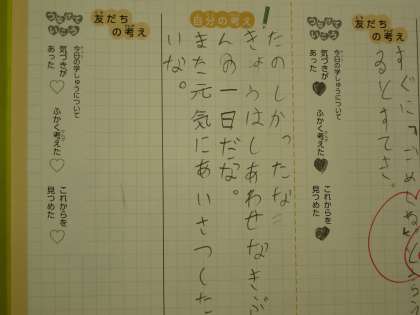 友だち
の考え
るとすてき。
つなげて
いこう
今日の学しゅうについて
気づきが
あった
ふかく考えた
これからを
見つめた
自分の考え
たのしかったな
きょうはしあわせなきぶ
んの一日だな。
また元気にあいさつした
いな。
友だち
の考え
つなげて
いこう
今日の学しゅうについて
気づきが
あった
ふかく考えた
これからを
見つめた